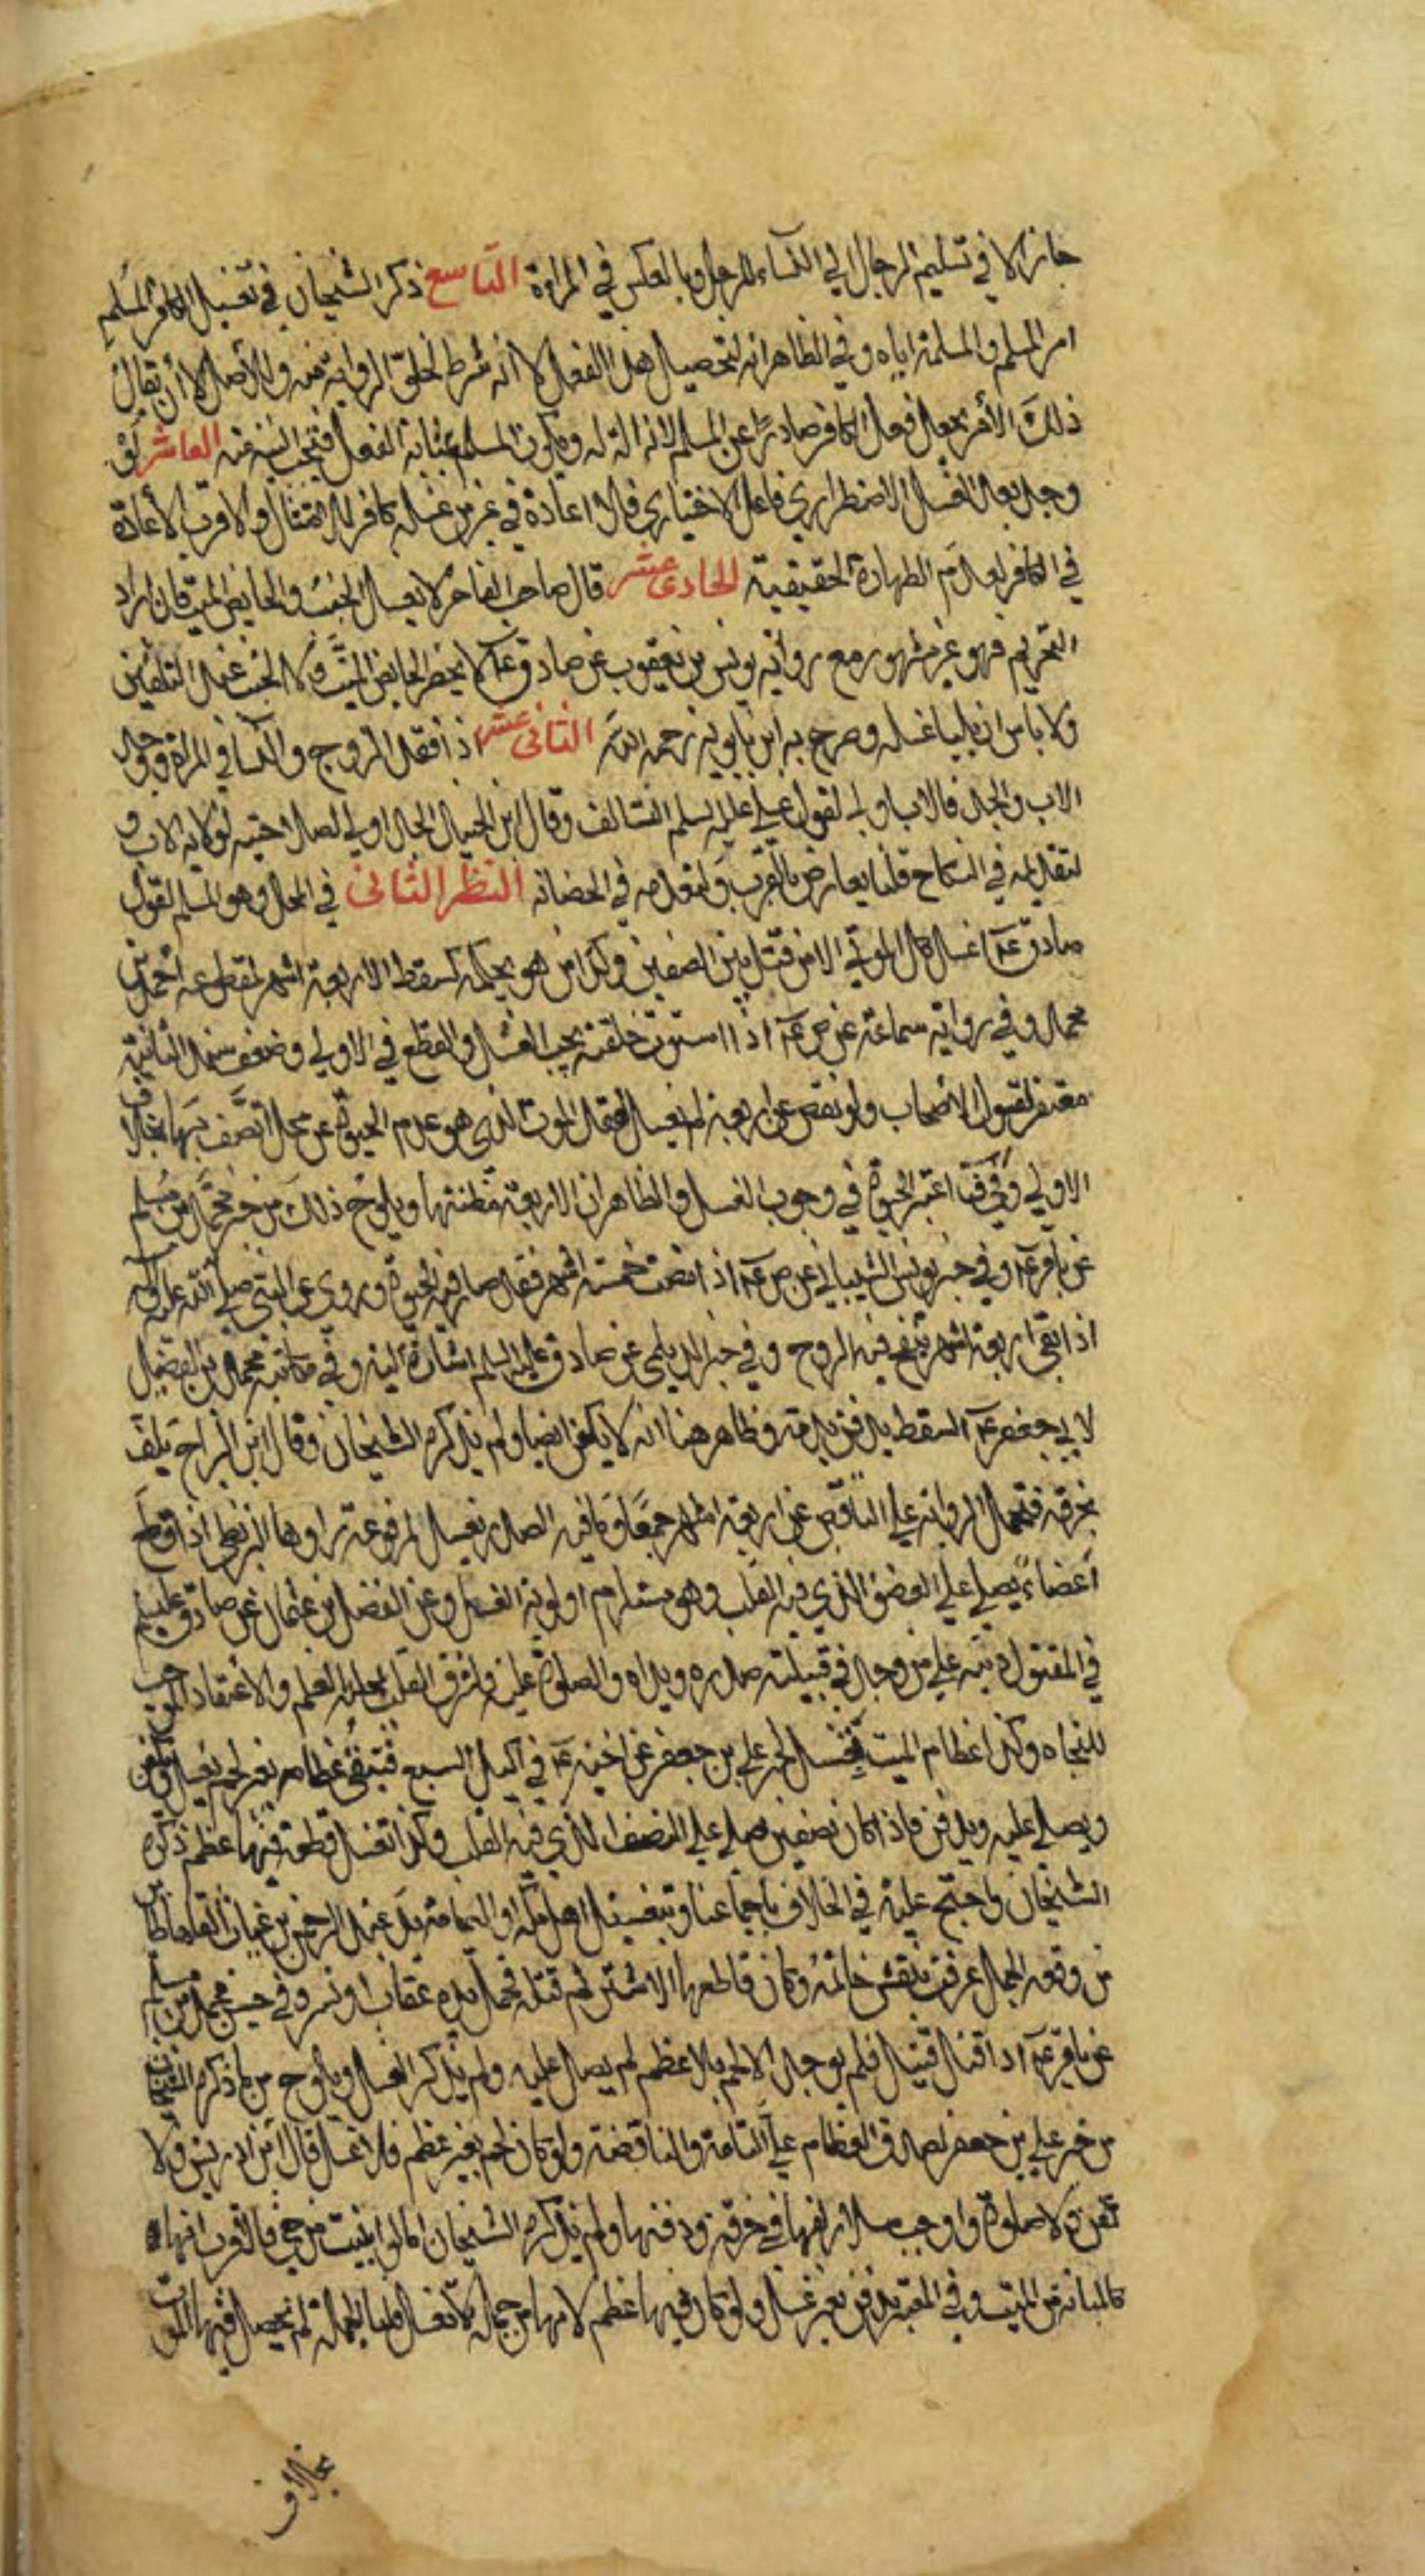 جاز الا في تسليم الرجال الي النساء للرجل وبالعكس في المراة التاسع ذكر الشيخان في تغسيل الكافر المسلم
امر المسلم والمسلمة اياه وفي الظاهر انه لتحصيل هذا الفعل لا انه شرط لخلو الرواية منه وللاصل الا أن يقال
ذلك الأمر يجعل فعل الكافر صادرًا عن المسلم لانه الة له ويكون المسلم بمثابة الفعل فتجب النية منه العاشر لو
وجد بعد الغسل الاضطراري فاعل الاختياري فلا اعادة في غير من غسله كافر للامتثال والاقرب الأعادة
في الكافر لعدم الطهارة الحقيقية الحادى عشر قال صاحب الفاخر لا يغسل الجنب والحايض الميت فان اراد
التحريم فهو غير مشهور مع رواية يونس بن يعقوب عن صادق عم لا يحضر الحايض الميت ولا الجنب عند التلقين
ولا باس ان يليا غسله وصرح به ابن بابويه رحمه الله الثانى عشر اذ افقد الزوج والنسا في المراة ووجد
الاب والجد فالاب اولي لقول علي عليه السلم السالف وقال ابن الجنيد الجد اولي لصلاحيته لولاية الاب و
لتقديمه في النكاح قلنا يعارض بالقرب وتقدمه في الحضانه النظر الثانى في المحل وهو المسلم لقول
صادق عم اغسل كل الموتي الا من قتل بين الصفين وكذا من هو بحكمه كسقط الاربعة اشهر لمقطوعه احمد بن
محمد وفي رواية سماعة عن ص عم اذا استوت خلقته يجب الغسل والقطع في الاولي وضعف سند الثانية
مغتفر لقبول الاصحاب ولو نقص عن اربعة لم يغسل لفقد الموت الذي هو عدم الحيوة عن محل اتصف بها بخلاف
الاولي اعتبر الحيوة في وجوب الغسل والظاهر ان الاربعة مظنتها ويلوح ذلك من خبر محمد بن مسلم
عن باقر عم وفي خبر يونس الشيباني عن ص عم اذا مضت خمسة اشهر فقد صار فيه الحيوة وروي عن النبي صلي الله عليه واله
اذا بقي اربعة اشهر ينفخ فيه الروح وفي خبر الديلمي عن صادق عليه السلم اشارة اليه وفي مكاتبة محمد بن الفضيل
لابي جعفر عم السقط يدفن بدمه وظاهر هنا انه لا يكفن ايضا ولم يذكره الشيخان وقال ابن البراج يلف
بخرقة فتحمل الرواية علي الناقص عن اربعة اشهر جمعًا وما فيه الصدر يغسل لمرفوعة رواها البزنطي اذا قطع
أعضاءً يصلي علي العضو الذي فيه القلب وهو يستلزم اولوية الغسل وعن الفضل بن عثمان عن صادق عليه السلم
في المقتول ديته علي من وجد في قبيلته صدره ويداه والصلوة عليه ولشرف القلب بمحلية العلم والاعتقاد الموجب
للنجاه وكذا عظام الميت تغسل لخبر علي بن جعفر عن اخيه عم في اكيل السبع فتبقي عظامه بغير لحم يغسل ويكفن
ويصلي عليه ويدفن فاذا كان نصفين صلي علي النصف الذي فيه القلب وكذا تغسل قطعة فيها عظم ذكره
الشيخان واحتج عليه في الخلاف باجماعنا وبتغسيل اهل مكة او اليمامة يد عبد الرحمن بن عتاب القاها طاير
من وقعة الجمل عرفت بنقش خاتمه وكان قاطعها الاشتر ثم قتله فحمل يده عقاب او نسر وفي حسن محمد بن مسلم
عن باقر عم اذا قتل قتيل فلم يوجد الا لحم بلا عظم لم يصل عليه ولم يذكر الغسل ويلوح من ما ذكره الشيخان
من خبر علي بن جعفر لصدق العظام علي التامة والناقصة ولو كان لحم بغير عظم فلا غسل قال ابن ادريس ولا
كفن ولا صلوة واوجب سلار لفها في خرقة ودفنها ولم يذكره الشيخان اما لو ابينت من حي فالاقرب انها
كالمبانة من الميت وفي المعتبر تدفن بغير غسل ولو كان فيها عظم لانها من جملة لا تغسل قلنا الجملة لم يحصل فيها الموت
بخلاف